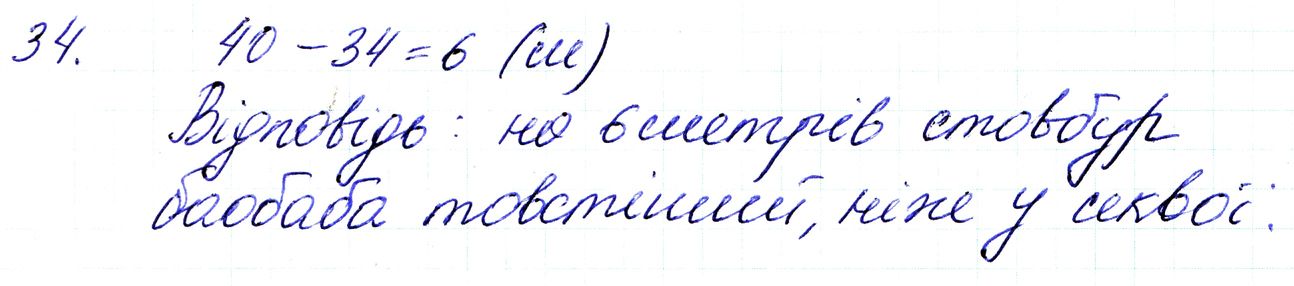 34. 40 - 34 = 6 (м)
Відповідь: на 6 метрів стовбур
баобаба товстіший, ніже у секвої.